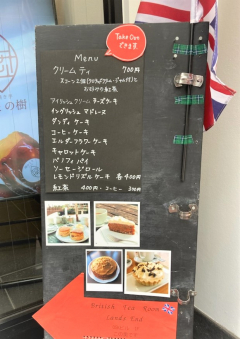 Take Out
できます
Menu
クリームティ 700円
スコーン2個(クロテッドクリーム・ジャム付)と
お好みの紅茶
アイリッシュクリームチーズケーキ
イングリッシュマドレーヌ
ダンディケーキ
コーヒーケーキ
エルダーフラワーケーキ
キャロットケーキ
バノフィパイ
ソーセージロール
レモンドリズルケーキ 各400円
紅茶 400円・コーヒー
の樹
British Tea Room
Lands End